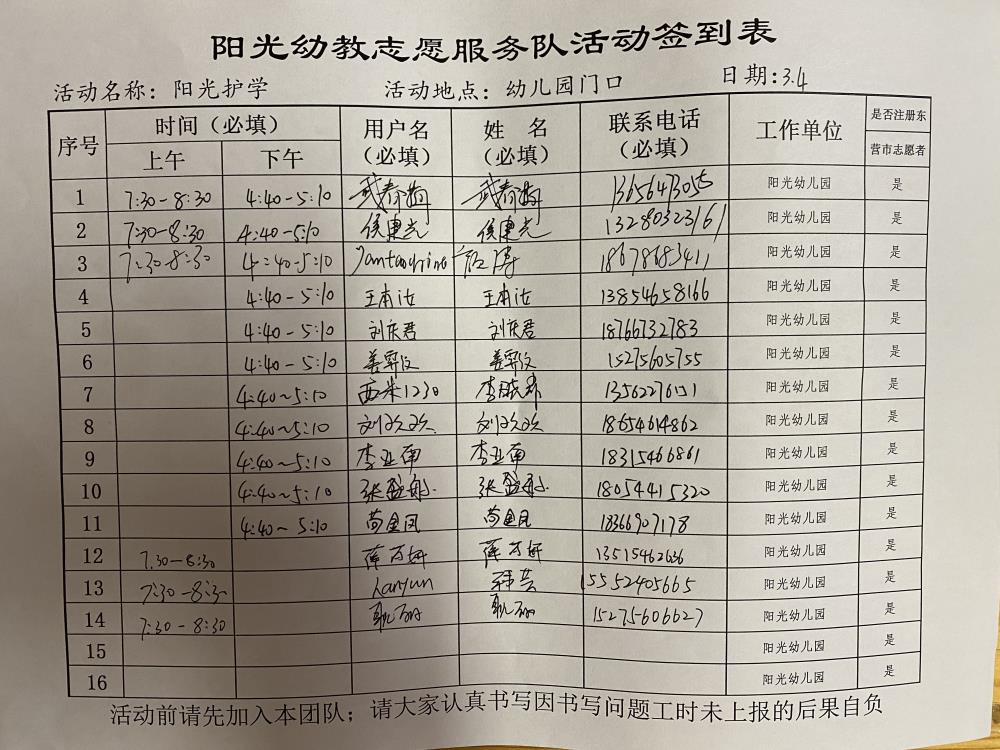 阳光幼教志愿服务队活动签到表
活动名称：阳光护学 活动地点：幼儿园门口 日期：3.4
序号 时间（必填） 用户名（必填） 姓名（必填） 联系电话（必填） 工作单位 是否注册东营市志愿者
上午 下午
1 7:30-8:30 4:40-5:10 武春梅 武春梅 13656473055 阳光幼儿园 是
2 7:30-8:30 4:40-5:10 侯建光 侯建光 13280323161 阳光幼儿园 是
3 7:30-8:30 4:40-5:10 18678683411 阳光幼儿园 是
4 4:40-5:10 王南汝 王南汝 13854658166 阳光幼儿园 是
5 4:40-5:10 刘庆君 刘庆君 18766732783 阳光幼儿园 是
6 4:40-5:10 15275605755 阳光幼儿园 是
7 4:40~5:10 西米1230 阳光幼儿园 是
8 4:40~5:10 刘欢欢 刘欢欢 18654614862 阳光幼儿园 是
9 4:40~5:10 李亚南 李亚南 18315466861 阳光幼儿园 是
10 4:40~5:10 18054415320 阳光幼儿园 是
11 4:40~5:10 苟金凤 苟金凤 18366907178 阳光幼儿园 是
12 7.30-8:30 薛万妍 薛万妍 13515462636 阳光幼儿园 是
13 7:30-8:30 hanyun 韩芸 15552405665 阳光幼儿园 是
14 7:30-8:30 耿丽 耿丽 15275606627 阳光幼儿园 是
15 阳光幼儿园 是
16 阳光幼儿园 是
活动前请先加入本团队；请大家认真书写因书写问题工时未上报的后果自负